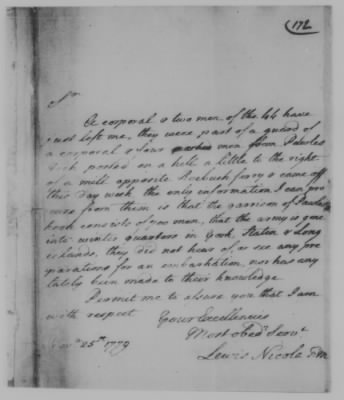 172
Sr
A corporal & two men of the 44 have
just left me, they were part of a guard of
a corporal & four men from Powles
Hook posted on a hill a little to the right
of a mill opposite ferry & came off
this day week. the only information I can pro
cure from them is that the garrison of Powles
hook consists of 400 men, that the army is gone
into winter quarters in York, Staten & Long
islands, they did not hear of, or see any pre
parations for an embarkation, nor has any
lately been made to their knowledge
Permit me to assure you that I am
with respect Your Excellencies
Most obedt Servt
Novr 25th 1779
Lewis Nicola